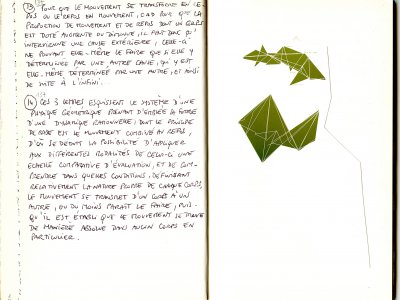 (13) POUR QUE LE MOUVEMENT SE TRANSFORME EN RE-
POS OU LE REPOS EN MOUVEMENT, CAD POUR QUE LA
PROPORTION DE MOUVEMENT ET DE REPOS DONT UN CORPS
EST DOTÉ AUGMENTE OU DIMINUE, IL FAUT DONC QU'
INTERVIENNE UNE CAUSE EXTÉRIEURE, CELLE-CI
NE POUVANT ELLE-MÊME LE FAIRE QUE SI ELLE Y
DÉTERMINÉE PAR UNE AUTRE CAUSE, QUI Y EST
ELLE-MÊME DÉTERMINÉE PAR UNE AUTRE, ET AINSI
DE SUITE À L'INFINI.
(14) CES 3 LEMMES ESQUISSENT LE SYSTÈME D'UNE
PHYSIQUE GÉOMÉTRIQUE PRENANT D'EMBLÉE LA FORME
D'UNE DYNAMIQUE RATIONNELLE, DONT LE PRINCIPE
DE BASE EST LE MOUVEMENT COMBINÉ AU REPOS,
D'OÙ SE DÉDUIT LA POSSIBILITÉ D'APPLIQUER
AUX DIFFÉRENTES MODALITÉS DE CELUI-CI UNE
ÉCHELLE COMPARATIVE D'ÉVALUATION, ET DE COM-
PRENDRE DANS QUELLES CONDITIONS, DÉFINISSANT
RELATIVEMENT LA NATURE PROPRE DE CHAQUE CORPS,
LE MOUVEMENT SE TRANSMET D'UN CORPS À UN
AUTRE, OU DU MOINS PARAÎT LE FAIRE, PUIS-
QU'IL EST ÉTABLI QUE LE MOUVEMENT SE TROUVE
DE MANIÈRE ABSOLUE DANS AUCUN CORPS EN
PARTICULIER.